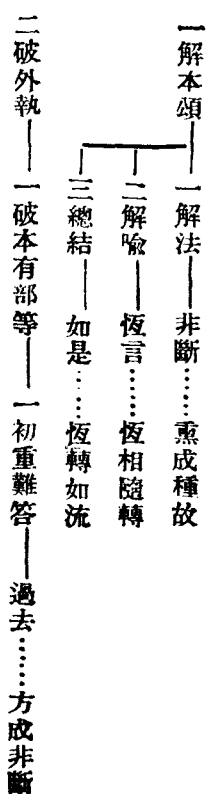 一解本頌——一解法——非斷……熏成種故
二解喻——恆言……恆相隨轉
三總結——如是……恆轉如流
二破外執——一破本有部等——一初重難答——過去……方成非斷